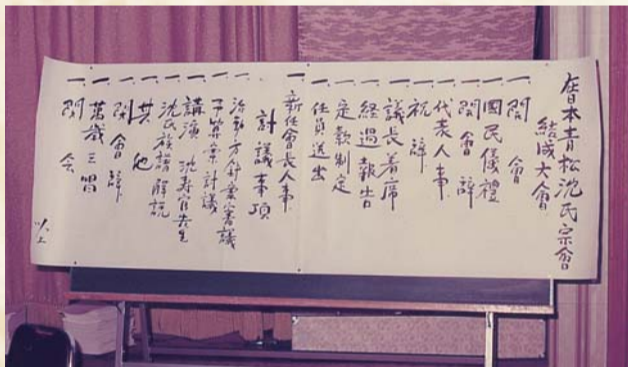 在日本青松沈氏宗會
結成大會
一 開會
一 國民儀禮
一 開會辞
一 代表人事
一 祝辞
一 議長着席
一 経過報告
一 定款制定
一 任員選出
一 新任會長人事
討議事項
一 活動方針案審議
一 予算案討議
一 講演 沈寿官先生
一 沈氏族譜解説
一 其他
一 閉會辞
一 萬歳三唱
一 閉会
以上